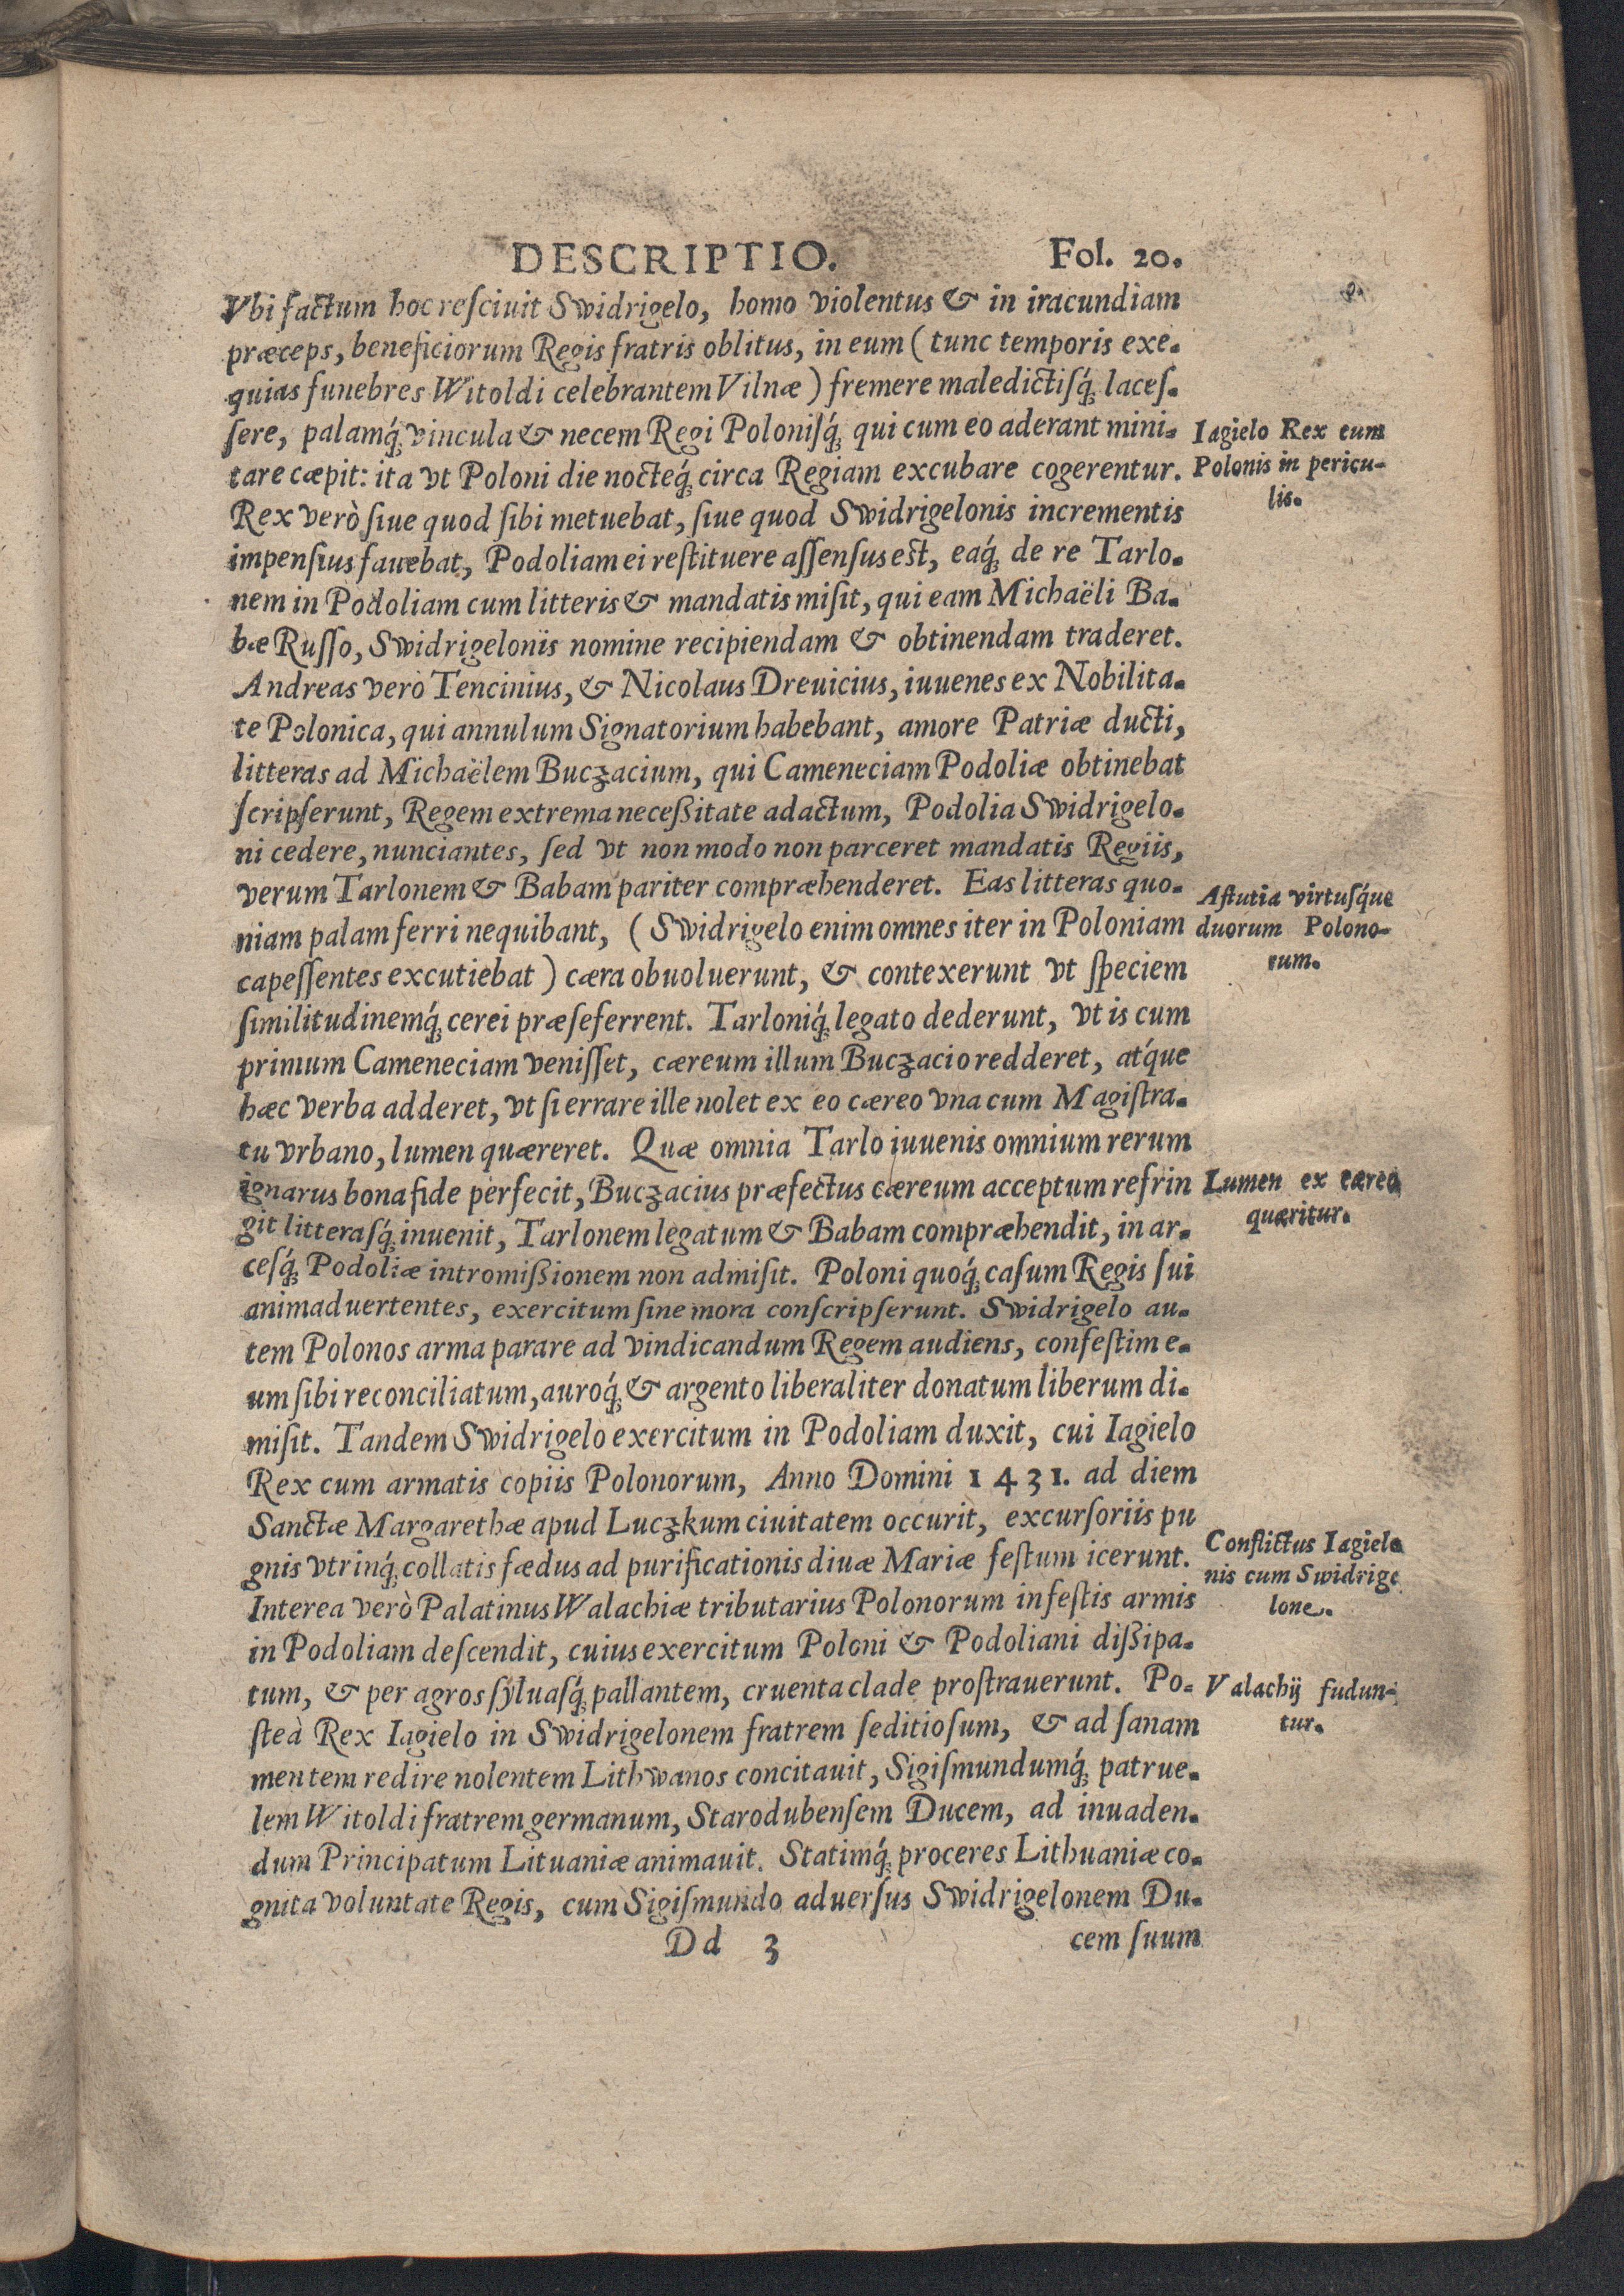 DESCRIPTIO. Fol. 20.
Vbi factum hoc resciuit Swidrigelo, homo violentus & in iracundiam
præceps, beneficiorum Regis fratris oblitus, in eum (tunc temporis exe-
quias funebres Witoldi celebrantem Vilnæ) fremere maledictisq́; laces-
sere, palamq́; vincula & necem Regi Polonisq́; qui cum eo aderant mini-
tare cæpit: ita vt Poloni die nocteq́; circa Regiam excubare cogerentur.
Iagielo Rex cum
Polonis in pericu-
lis.
Rex verò siue quod sibi metuebat, siue quod Swidrigelonis incrementis
impensius fauebat, Podoliam ei restituere assensus est, eaq́; de re Tarlo-
nem in Podoliam cum litteris & mandatis misit, qui eam Michaëli Ba-
bæ Russo, Swidrigelonis nomine recipiendam & obtinendam traderet.
Andreas verò Tencinius, & Nicolaus Dreuicius, iuuenes ex Nobilita-
te Polonica, qui annulum Signatorium habebant, amore Patriæ ducti,
litteras ad Michaëlem Buczacium, qui Cameneciam Podoliæ obtinebat
scripserunt, Regem extrema necessitate adactum, Podolia Swidrigelo-
ni cedere, nunciantes, sed vt non modo non parceret mandatis Regiis,
verum Tarlonem & Babam pariter compræhenderet. Eas litteras quo-
niam palam ferri nequibant, (Swidrigelo enim omnes iter in Poloniam
capessentes excutiebat) cæra obuoluerunt, & contexerunt vt speciem
Astutia virtusq́ue
duorum Polono-
rum.
similitudinemq́; cerei præseferrent. Tarloniq́; legato dederunt, vt is cum
primum Cameneciam venisset, cæreum illum Buczacio redderet, atq́ue
hæc verba adderet, vt si errare ille nolet ex eo cæreo vna cum Magistra-
tu vrbano, lumen quæreret. Quæ omnia Tarlo iuuenis omnium rerum
ignarus bona fide perfecit, Buczacius præfectus cæreum acceptum refrin
git litterasq́; inuenit, Tarlonem legatum & Babam compræhendit, in ar-
Lumen ex cæreo
quæritur.
cesq́; Podoliæ intromissionem non admisit. Poloni quoq́; casum Regis sui
animaduertentes, exercitum sine mora conscripserunt. Swidrigelo au-
tem Polonos arma parare ad vindicandum Regem audiens, confestim e-
um sibi reconciliatum, auroq́; & argento liberaliter donatum liberum di-
misit. Tandem Swidrigelo exercitum in Podoliam duxit, cui Iagielo
Rex cum armatis copiis Polonorum, Anno Domini 1431. ad diem
Sanctæ Margarethæ apud Luczkum ciuitatem occurit, excursoriis pu
gnis vtrinq́; collatis fædus ad purificationis diuæ Mariæ festum icerunt.
Interea verò Palatinus Walachiæ tributarius Polonorum infestis armis
Conflictus Iagielo
nis cum Swidrige
lone.
in Podoliam descendit, cuius exercitum Poloni & Podoliani dissipa-
tum, & per agros syluasq́; pallantem, cruenta clade prostrauerunt. Po-
steà Rex Iagielo in Swidrigelonem fratrem seditiosum, & ad sanam
Valachij fudun-
tur.
mentem redire nolentem Lithwanos concitauit, Sigismundumq́; patrue-
lem Witoldi fratrem germanum, Starodubensem Ducem, ad inuaden-
dum Principatum Lituaniæ animauit. Statimq́; proceres Lithuaniæ co-
gnita voluntate Regis, cum Sigismundo aduersus Swidrigelonem Du-
Dd 3 cem suum